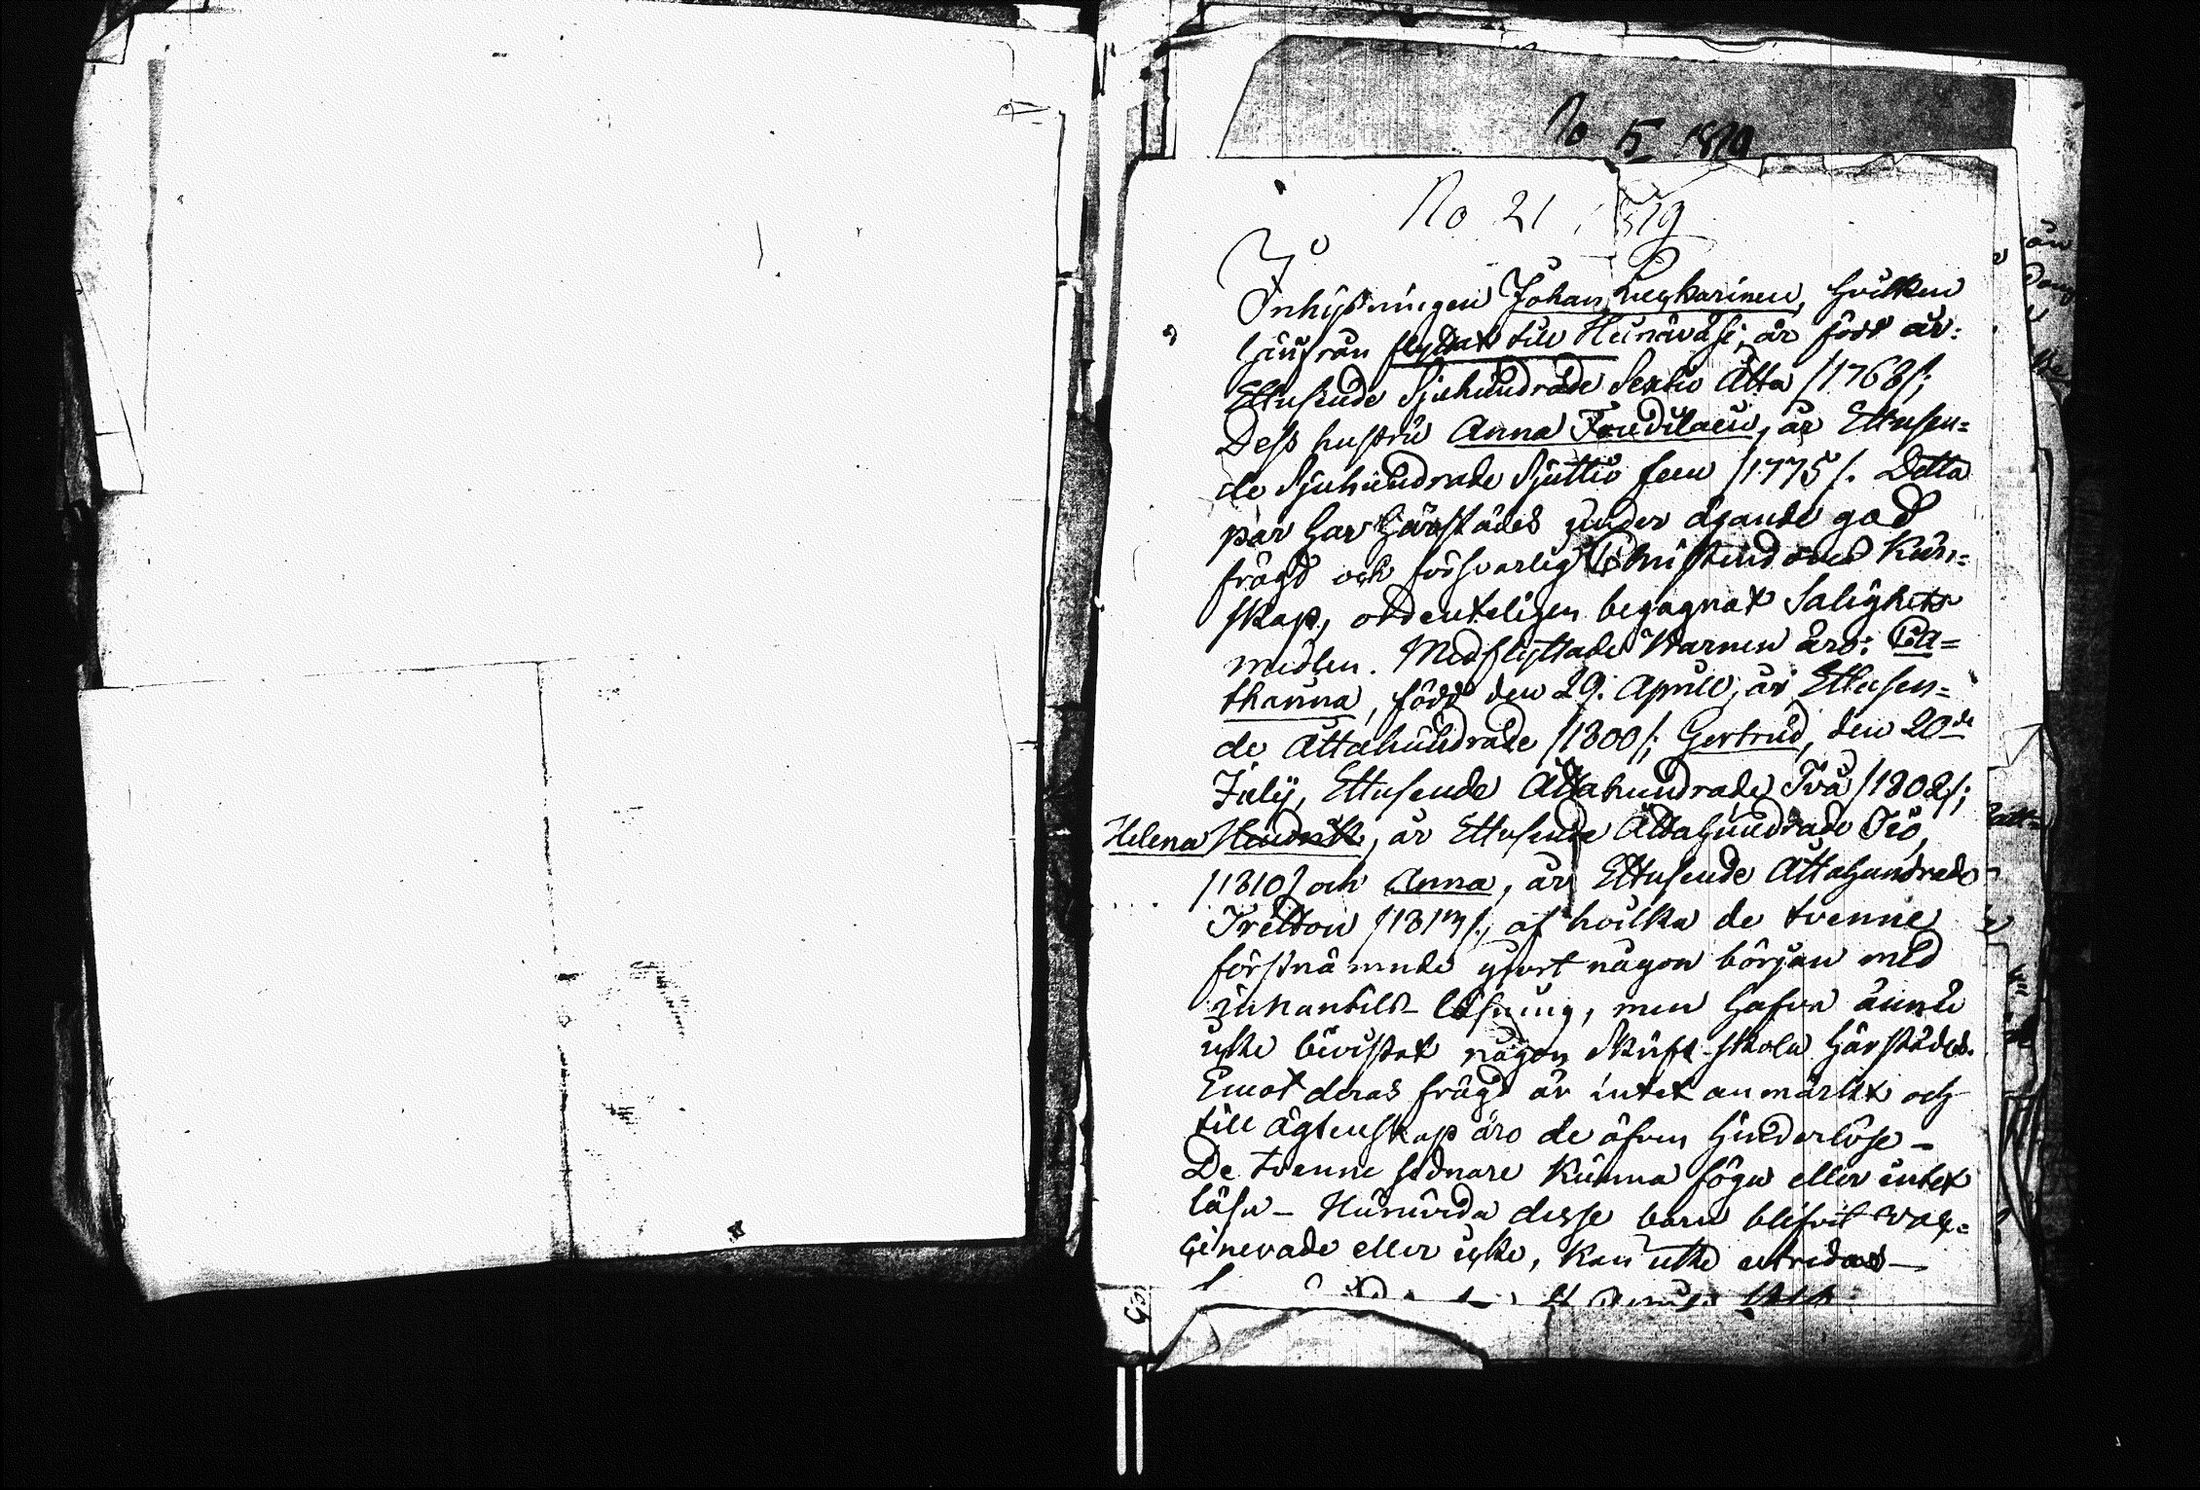 No 5 1819
No 21 1819
Inhysningen Johan Lieskarinen, hvilken
härifrån flyttat till Heinävesi, är född år:
Ettusende Sjuhundrade Sextio Åtta /1768/;
Dess hustru Anna Taudilain, år Ettusen=
de Sjuhundrade Sjuttio fem /1775/. Detta
par har härstädes under ägande god
frägd och försvarlig Christendoms Kun=
skap, ordenteligen begagnat Salighets
medlen. Medflyttade Barnen äro: Ca=
tharina, född den 29. April, år Ettusen=
de Åttahundrade /1800/; Gertrud, den 20de
July, Ettusende Åttahundrade Två /1802/;
Helena Hendrik, år Ettusende Åttahundrade Tio,
/1810/ och Anna, år Ettusende Åttahundrade
Tretton /1813/, af hvilka de tvenne
förstnämnde gjort någon början med
innantils läsning, men hafva ännu
icke bevistat någon Skrift-skola härstädes.
Emot deras frägd är intet anmärkt och
till ägtenskap äro de äfven hinderlöse –
De tvenne sednare kunna föga eller intet
läsa – Huruvida desse barn blifvit vac=
cinerade eller icke, kan icke utredas –